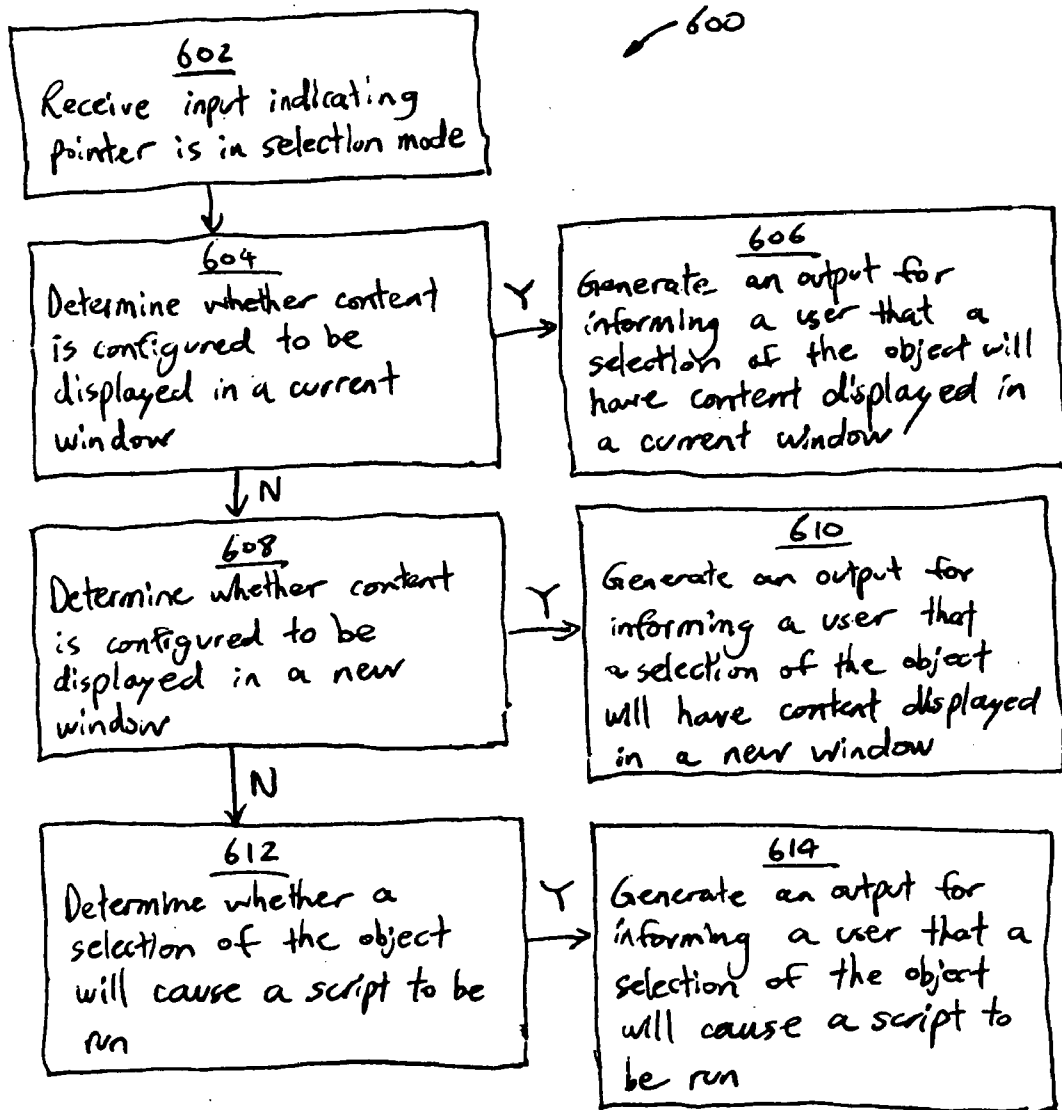 600
602
Receive input indicating
pointer is in selection mode
604
Determine whether content
is configured to be
displayed in a current
window
Y
606
Generate an output for
informing a user that a
selection of the object will
have content displayed in
a current window
N
608
Determine whether content
is configured to be
displayed in a new
window
Y
610
Generate an output for
informing a user that
a selection of the object
will have content displayed
in a new window
N
612
Determine whether a
selection of the object
will cause a script to be
run
Y
614
Generate an output for
informing a user that a
selection of the object
will cause a script to
be run